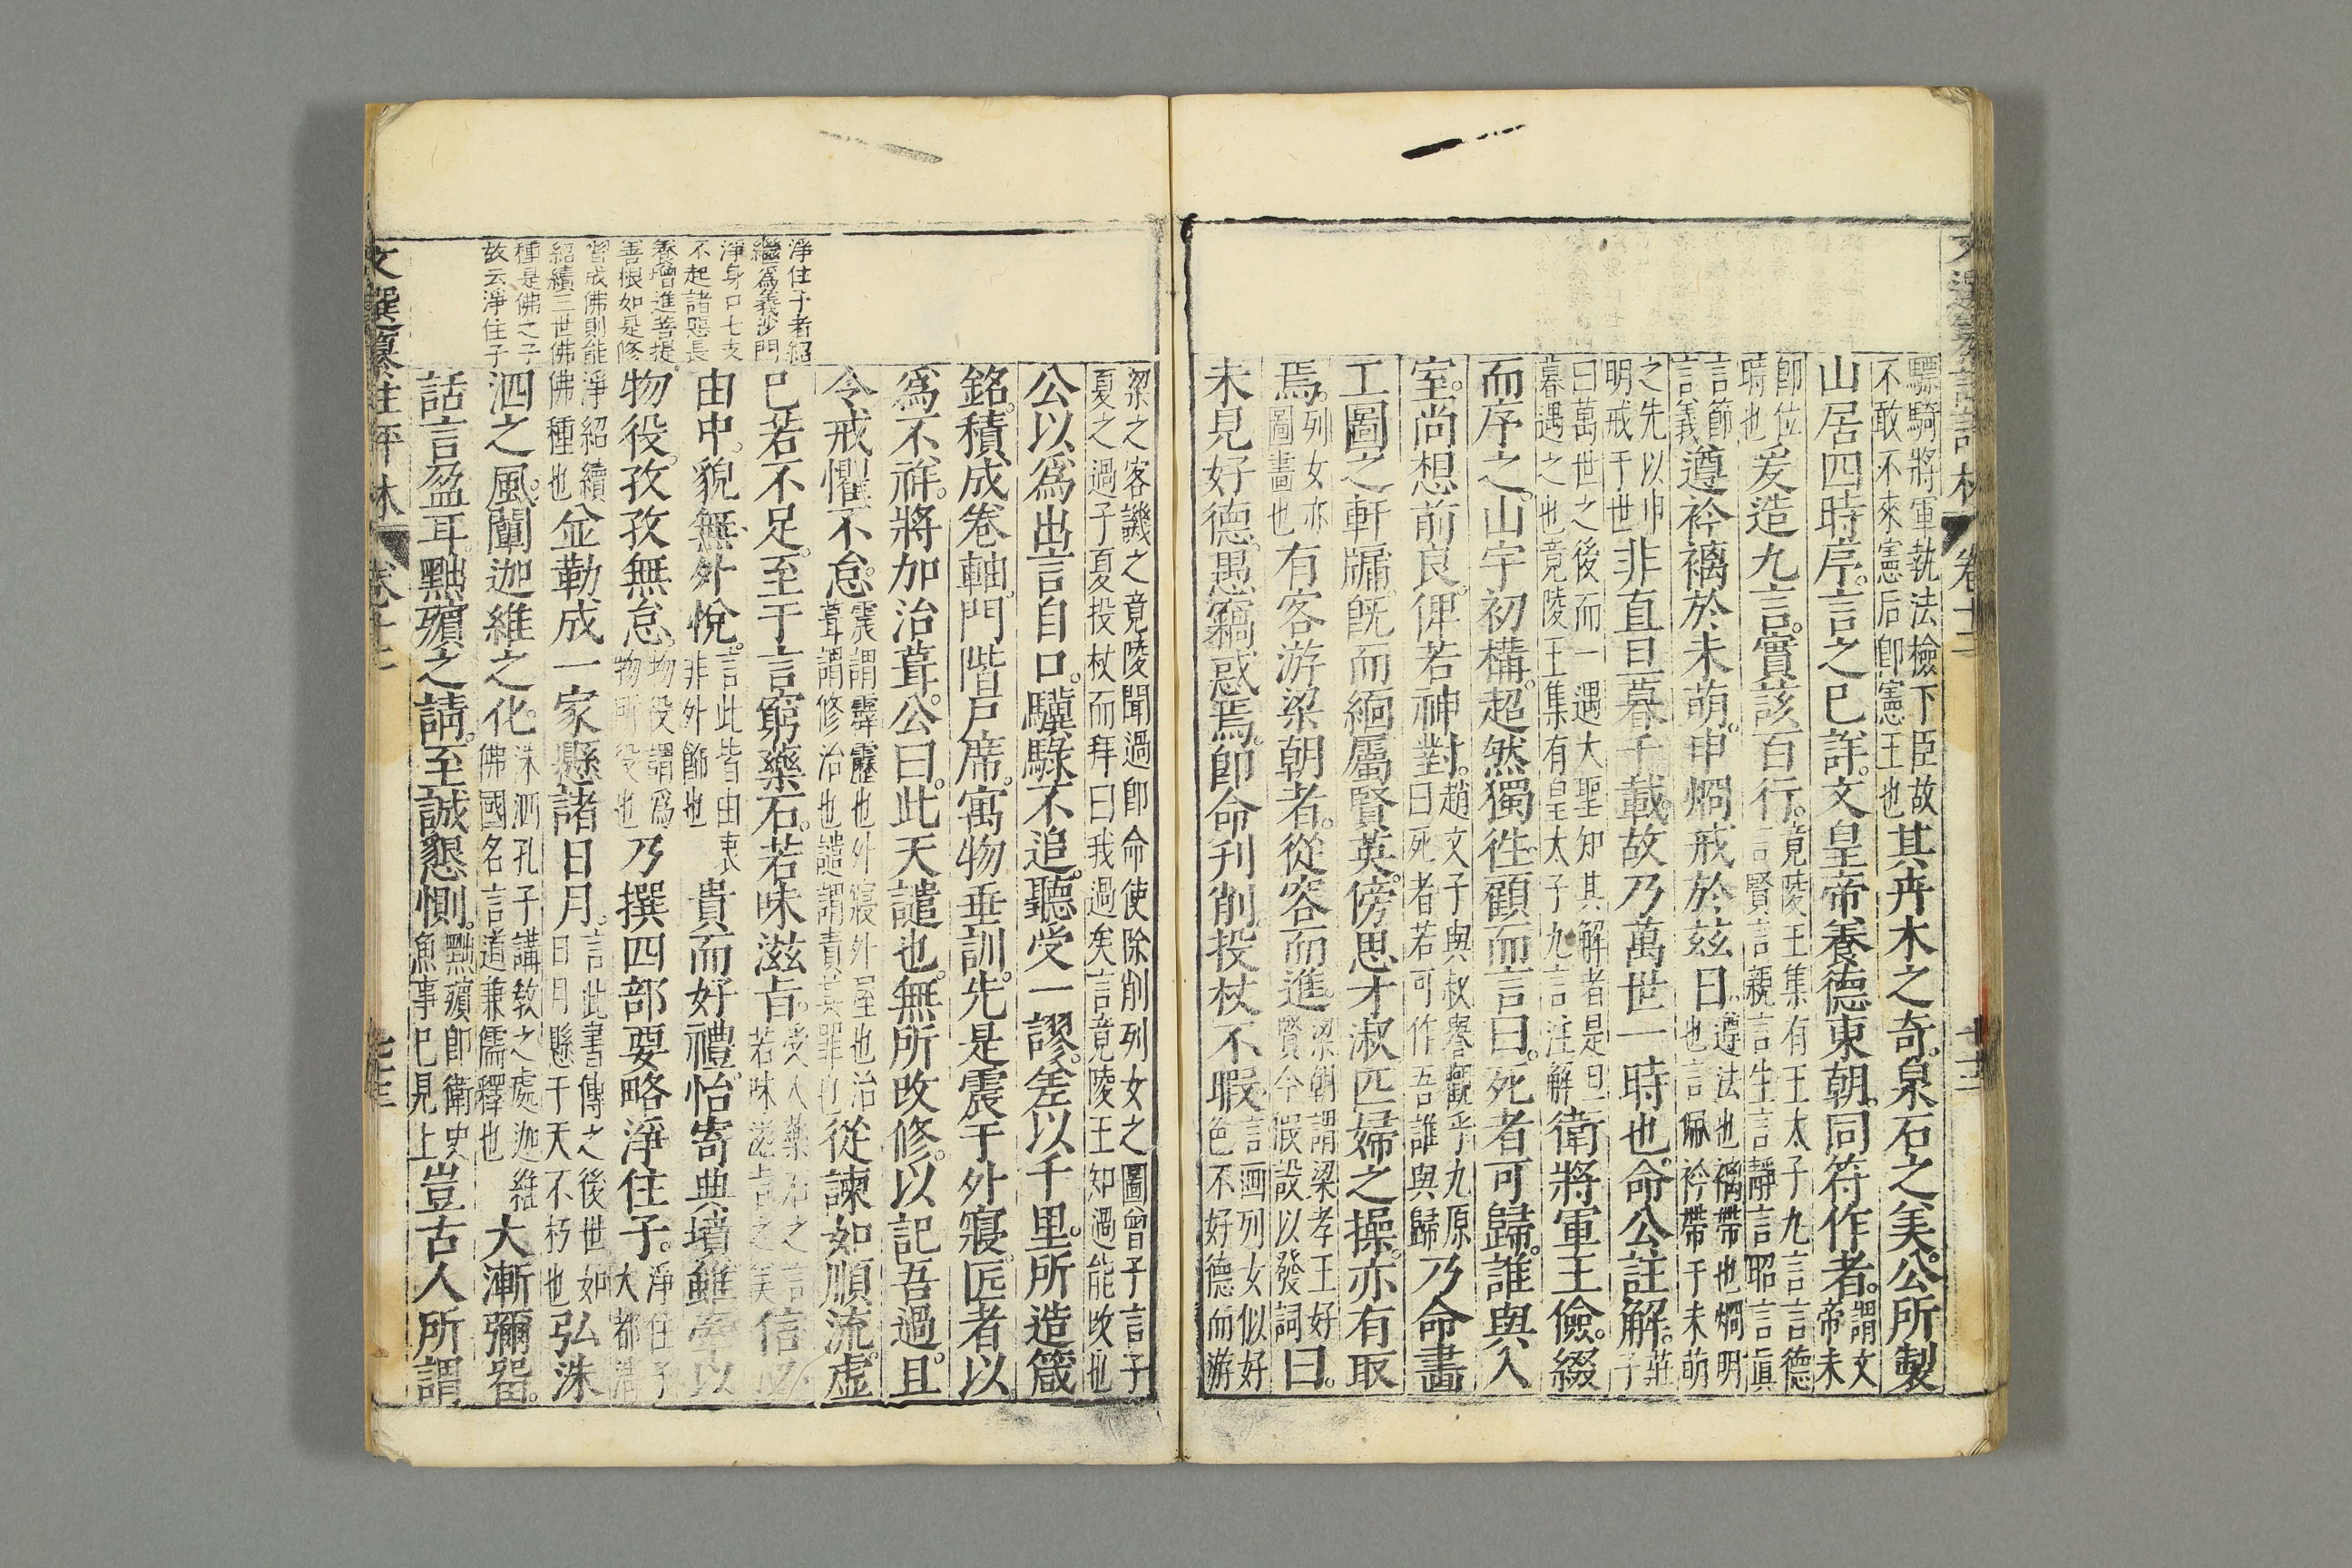 驃騎將軍執法檢下臣故
不敢不來憲后卽憲王也
其卉木之奇泉石之美公所製
山居四時序言之已詳文皇帝養德東朝同符作者
謂文
帝未
卽位
時也
爰造九言實該百行
竟陵王集有王太子九言言德
言賢言親言生言靜言昭言眞
言節
言義
遵衿褵於未萌申烱戒於兹日
遵法也褵帶也烱明
也言佩衿帶于未萌
之先以申
明戒于世
非直旦暮千載故乃萬世一時也命公註解
莊
子
曰萬世之後而一遇大聖知其解者是旦
暮遇之也竟陵王集有皇太子九言注解
衛將軍王儉綴
而序之山宇初構超然獨徃顧而言曰死者可歸誰與入
室尚想前良俾若神對
趙文子與叔譽觀乎九原
曰死者若可作吾誰與歸
乃命畫
工圖之軒牖旣而緬屬賢英傍思才淑匹婦之操亦有取
焉
列女亦
圖畫也
有客游梁朝者從容而進
梁朝謂梁孝王好
賢今假設以發詞
曰
未見好德愚竊惑焉卽命刋削投杖不暇
言画列女似好
色不好德而游
梁之客譏之竟陵聞過卽命使除削列女之圖曾子言子
夏之過子夏投杖而拜曰我過矣言竟陵王知過能改也
公以爲出言自口驥騄不追聽受一謬差以千里所造箴
銘積成卷軸門階戸席寓物垂訓先是震于外寢匠者以
爲不祥將加治葺公曰此天譴也無所改修以記吾過且
令戒懼不怠
震謂霹靂也外寢外屋也治
葺謂修治也譴謂責其罪也
從諫如順流虚
已若不足至于言窮藥石若味滋旨
受人藥石之言
若味滋旨之美
信必
由中貌無外悅
言此皆由衷
非外飾也
貴而好禮怡寄典墳雖牽以
物役孜孜無怠
物役謂爲
物所役也
乃撰四部要略淨住子
淨住子
大都清
淨紹續
佛種也
並勒成一家懸諸日月
言此書傳之後世如
日月懸于天不朽也
弘洙
泗之風闡迦維之化
洙泗孔子講敎之處迦維
佛國名言道兼儒釋也
大漸彌留
話言盈耳黜殯之請至誠懇惻
黜殯卽衛史
魚事已見上
豈古人所謂
淨住子者紹
繼爲義沙門
淨身口七支
不起諸惡長
養增進菩提
善根如是修
習成佛則能
紹續三世佛
種是佛之子
故云淨住子
文選纂註評林
卷十二